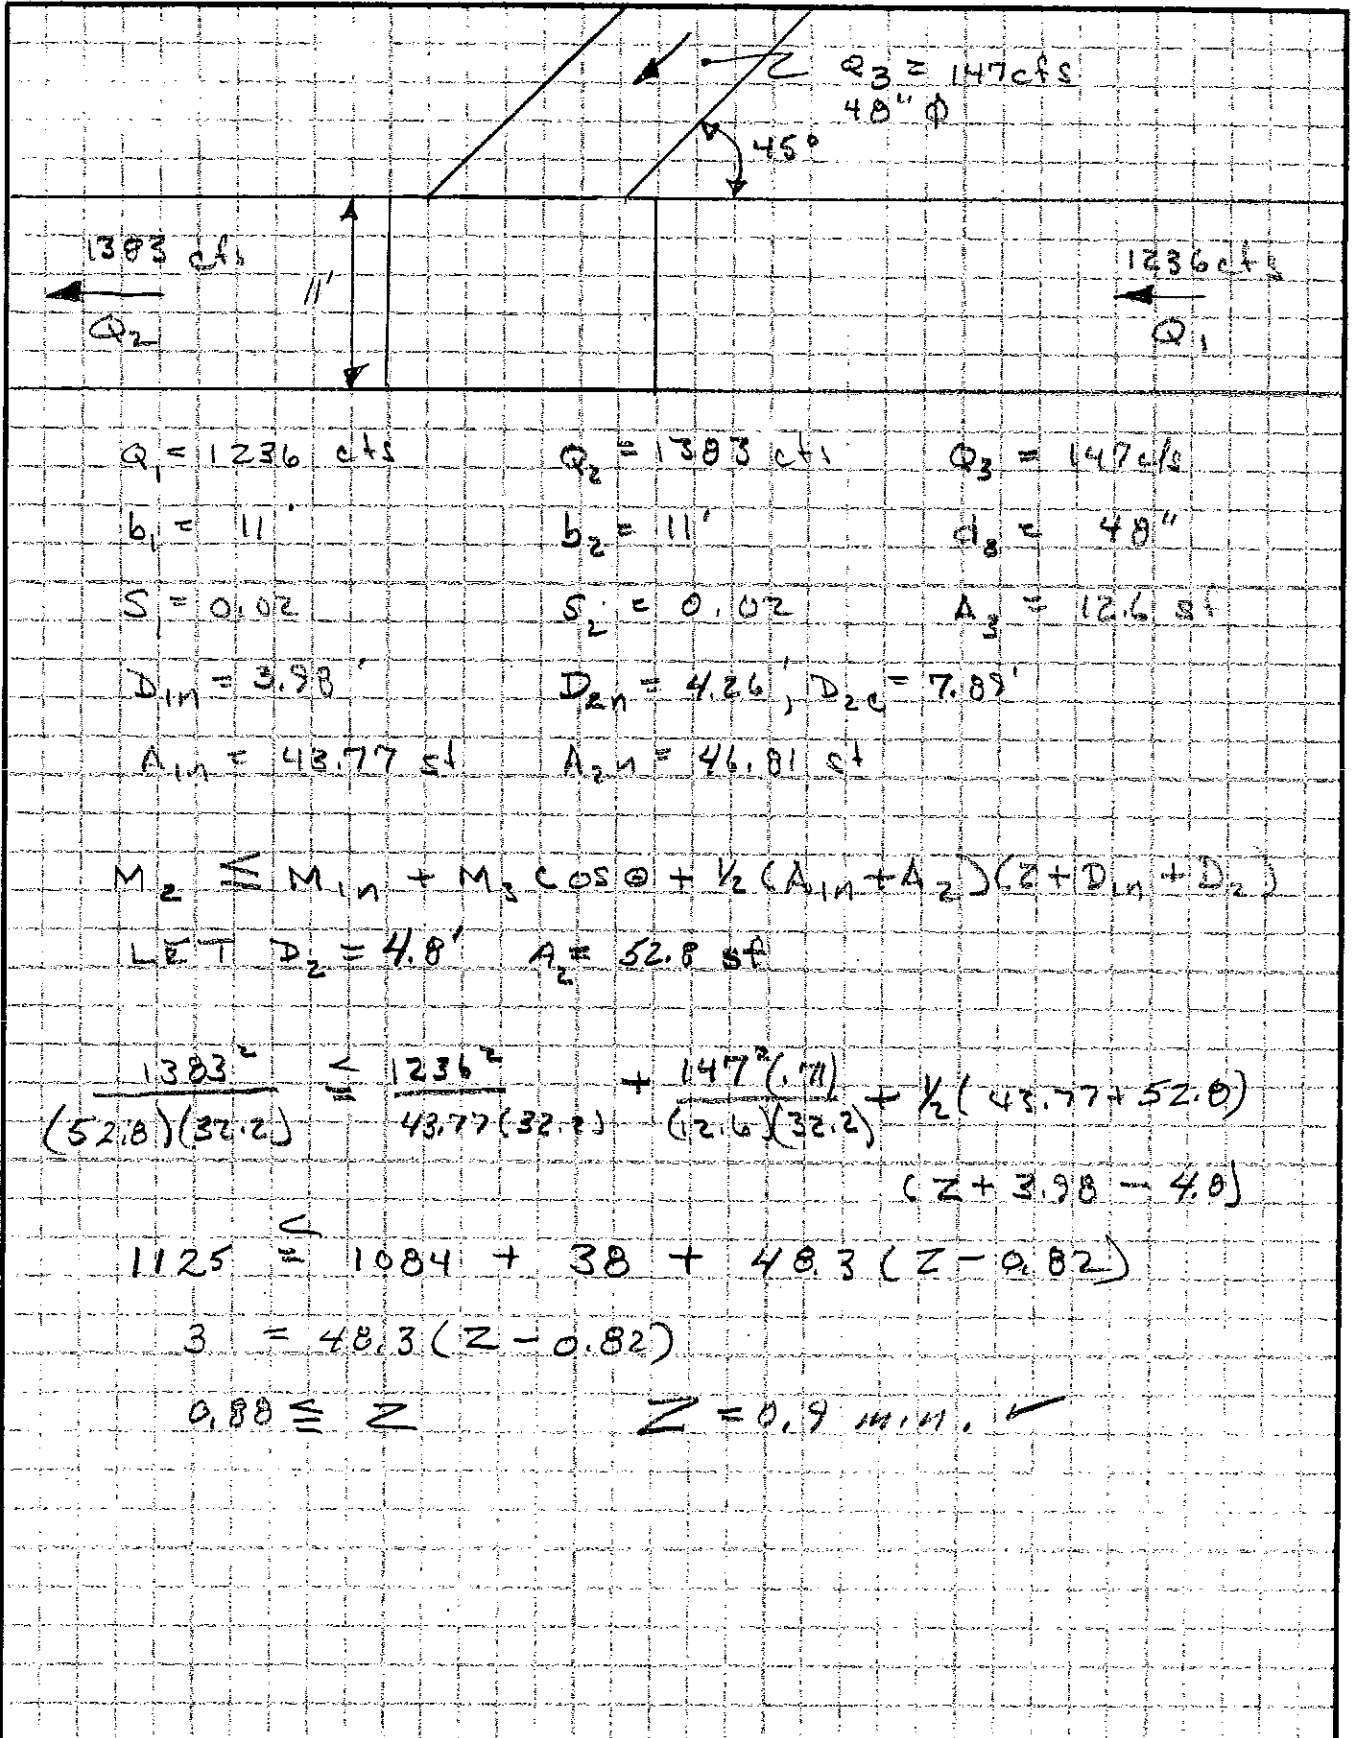 Q3 = 147cfs
48" φ
45°
1383 cfs
11'
1236 cfs
Q2
Q1
Q1 = 1236 cfs Q2 = 1383 cfs Q3 = 147 cfs
b1 = 11' b2 = 11' d3 = 48"
S1 = 0.02 S2 = 0.02 A3 = 12.6 sf
D1n = 3.98' D2n = 4.26', D2c = 7.89'
A1n = 43.77 sf A2n = 46.81 sf
M2 ≤ M1n + M3 cos θ + 1/2 (A1n + A2)(Z + D1n + D2)
LET D2 = 4.8' A2 = 52.8 sf
1383² / (52.8)(32.2) ≤ 1236² / 43.77(32.2) + 147²(.71) / (12.6)(32.2) + 1/2 (43.77 + 52.8)
(Z + 3.98 - 4.8)
1125 ≤ 1084 + 38 + 48.3 (Z - 0.82)
3 = 48.3 (Z - 0.82)
0.88 ≤ Z Z = 0.9 min. ✓